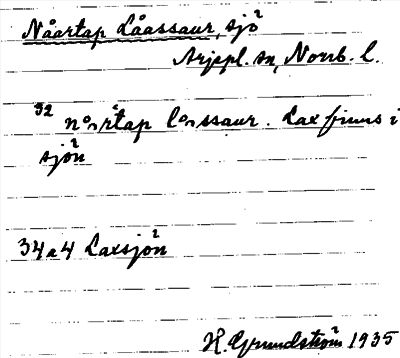 Nåartap Låassaur, sjö
Arjepl. sn, Norrb. l.
32 nårtap låssaur. Lax finns i
sjön
34a4 Laxsjön
H. Grundström 1935